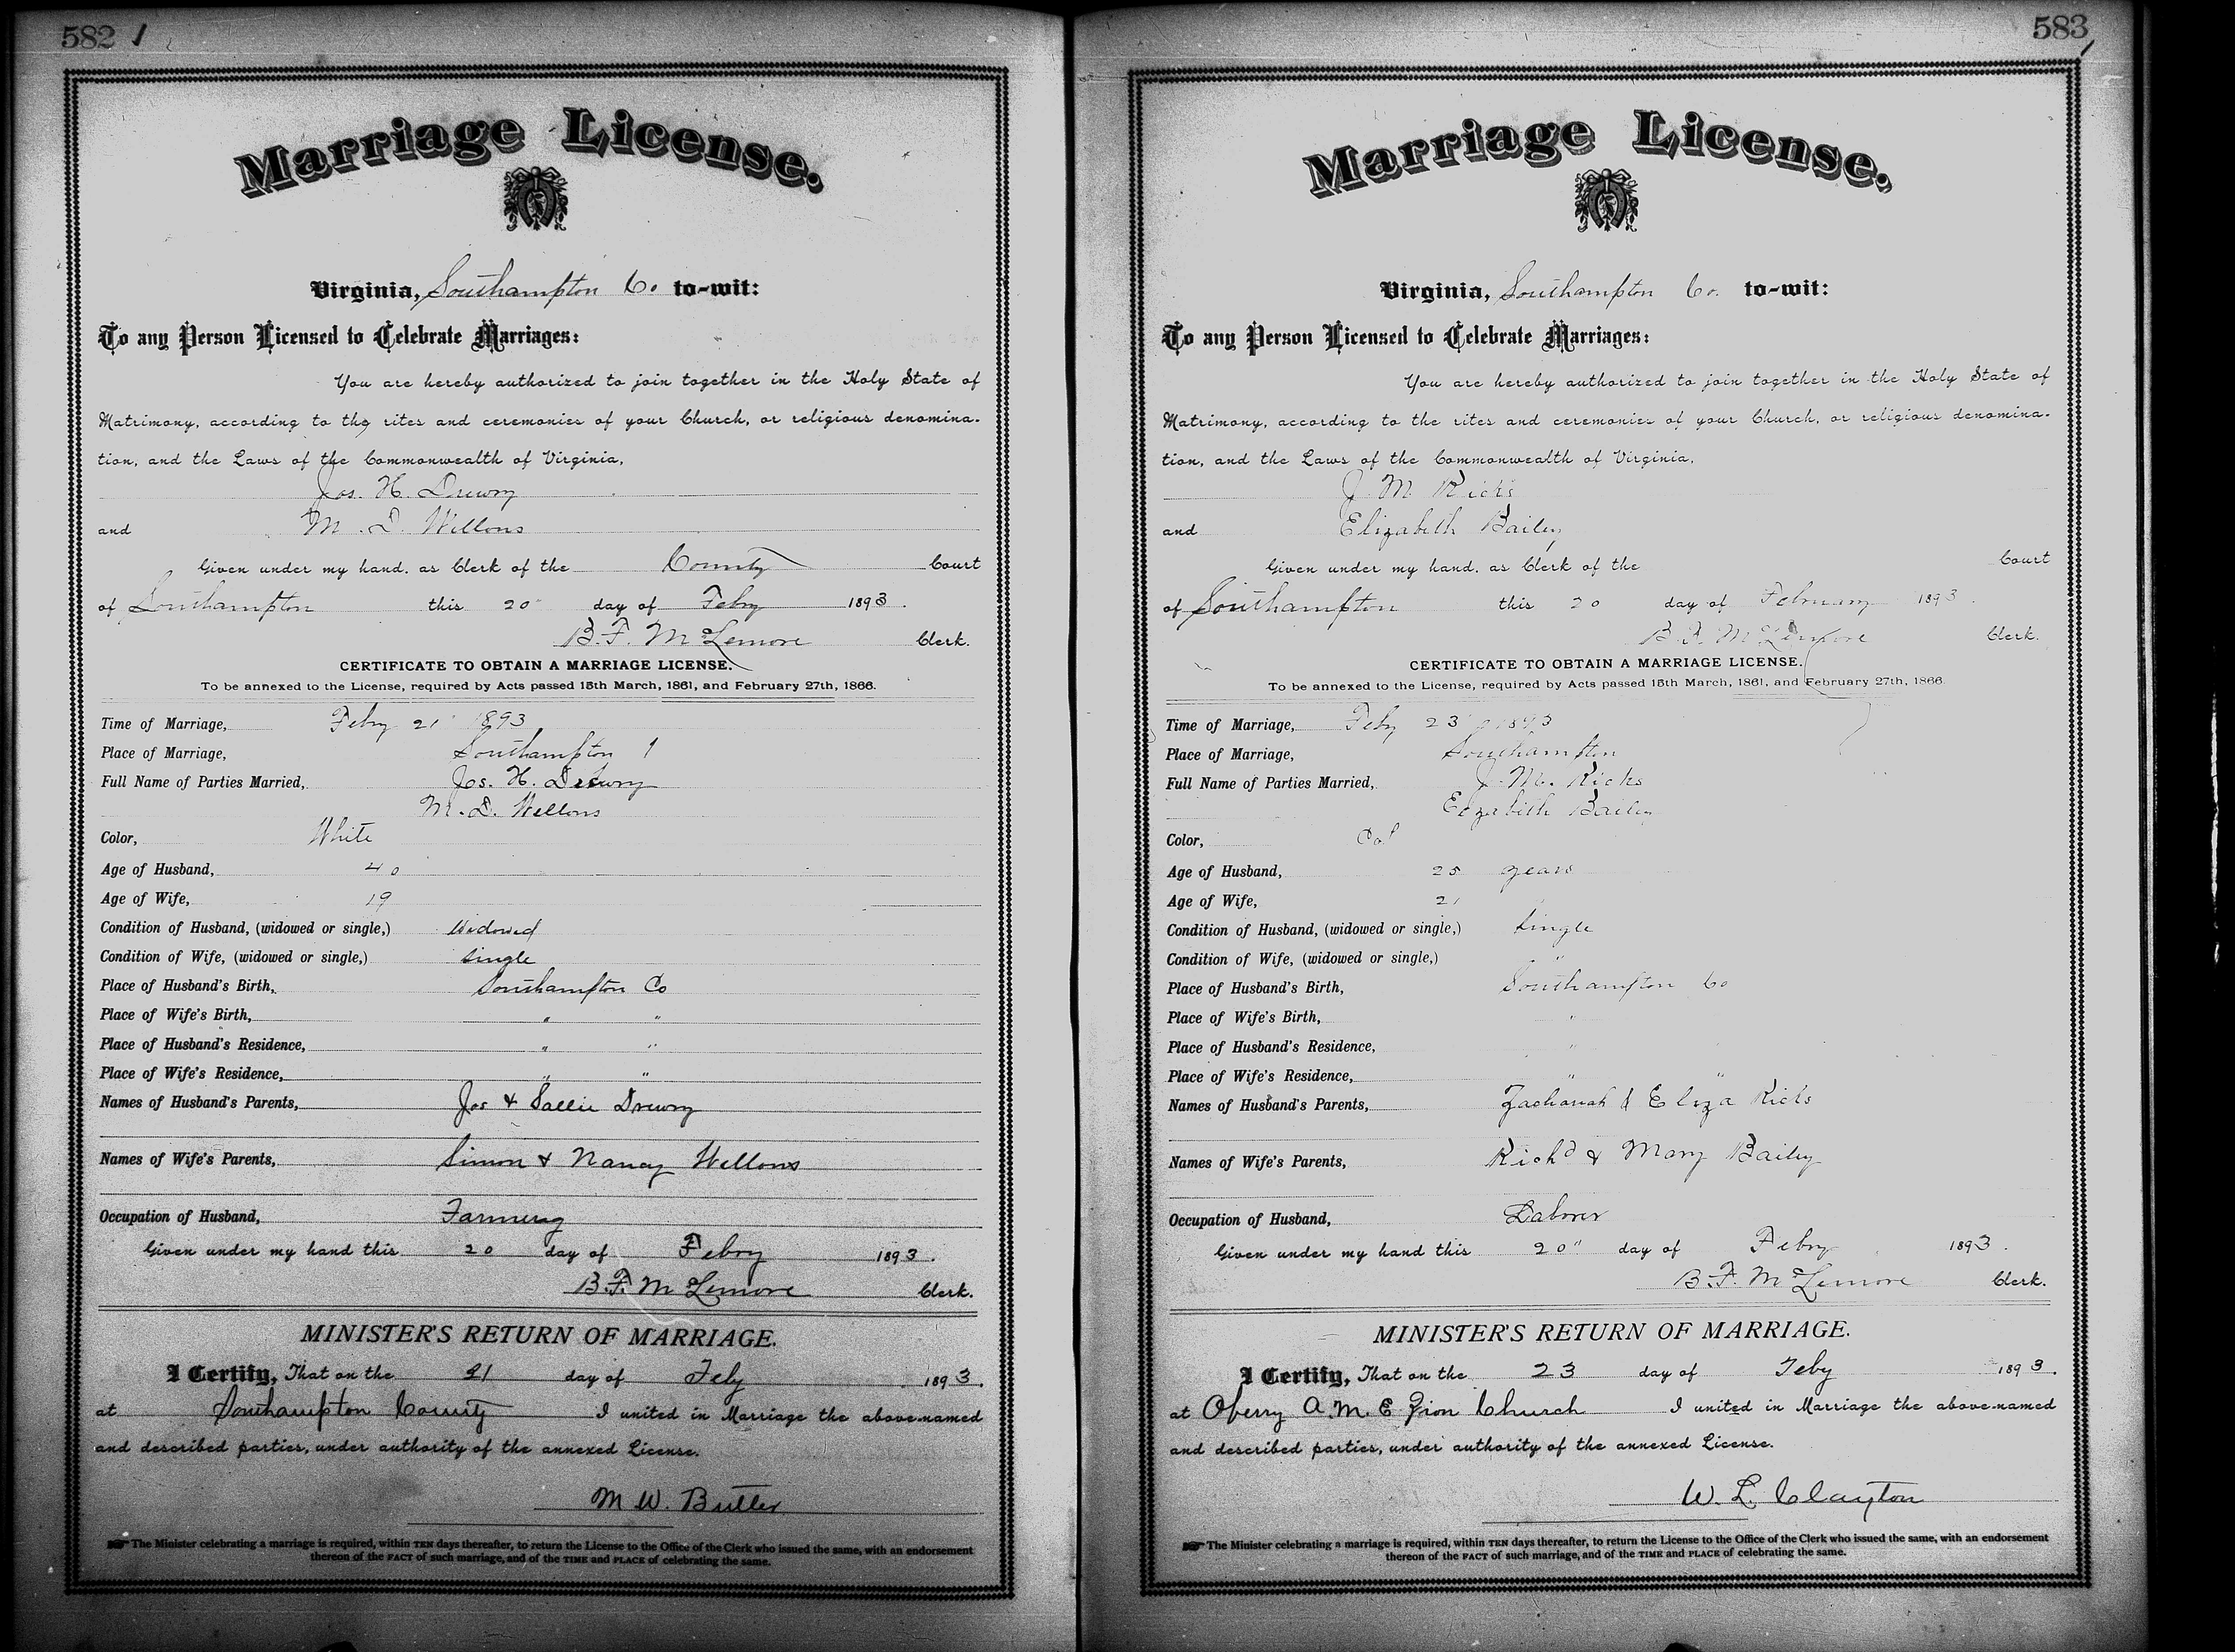 582 1
Marriage License.
Virginia, Southampton Co. to-wit:
To any Person Licensed to Celebrate Marriages:
You are hereby authorized to join together in the Holy State of
Matrimony, according to the rites and ceremonies of your Church, or religious denomina-
tion, and the Laws of the Commonwealth of Virginia,
Jos. H. Drewry
and M. D. Wellons
Given under my hand, as Clerk of the County Court
of Southampton this 20 day of Feby 1893.
B. F. McLemore Clerk.
CERTIFICATE TO OBTAIN A MARRIAGE LICENSE.
To be annexed to the License, required by Acts passed 15th March, 1861, and February 27th, 1866.
Time of Marriage, Feby 21 1893
Place of Marriage, Southampton
Full Name of Parties Married, Jos. H. Drewry
M. D. Wellons
Color, White
Age of Husband, 40
Age of Wife, 19
Condition of Husband, (widowed or single,) Widowed
Condition of Wife, (widowed or single,) Single
Place of Husband's Birth, Southampton Co
Place of Wife's Birth, " "
Place of Husband's Residence, " "
Place of Wife's Residence, " "
Names of Husband's Parents, Jos & Sallie Drewry
Names of Wife's Parents, Simon & Nancy Wellons
Occupation of Husband, Farming
Given under my hand this 20 day of Febry 1893.
B. F. McLemore Clerk.
MINISTER'S RETURN OF MARRIAGE.
I Certify, That on the 21 day of Feby 1893.
at Southampton County I united in Marriage the above-named
and described parties, under authority of the annexed License.
M. W. Butler
The Minister celebrating a marriage is required, within TEN days thereafter, to return the License to the Office of the Clerk who issued the same, with an endorsement
thereon of the FACT of such marriage, and of the TIME and PLACE of celebrating the same.
583
Marriage License.
Virginia, Southampton Co. to-wit:
To any Person Licensed to Celebrate Marriages:
You are hereby authorized to join together in the Holy State of
Matrimony, according to the rites and ceremonies of your Church, or religious denomina-
tion, and the Laws of the Commonwealth of Virginia,
J. M. Ricks
and Elizabeth Bailey
Given under my hand, as Clerk of the Court
of Southampton this 20 day of February 1893.
B. F. McLemore Clerk.
CERTIFICATE TO OBTAIN A MARRIAGE LICENSE.
To be annexed to the License, required by Acts passed 15th March, 1861, and February 27th, 1866.
Time of Marriage, Feby 23 1893
Place of Marriage, Southampton
Full Name of Parties Married, J. M. Ricks
Elizabeth Bailey
Color, Col
Age of Husband, 25 years
Age of Wife, 21
Condition of Husband, (widowed or single,) Single
Condition of Wife, (widowed or single,) "
Place of Husband's Birth, Southampton Co
Place of Wife's Birth, "
Place of Husband's Residence, "
Place of Wife's Residence, " "
Names of Husband's Parents, Zachariah & Eliza Ricks
Names of Wife's Parents, Richd & Mary Bailey
Occupation of Husband, Laborer
Given under my hand this 20" day of Febry 1893.
B. F. McLemore Clerk.
MINISTER'S RETURN OF MARRIAGE.
I Certify, That on the 23 day of Feby 1893.
at Oberry A. M. E Zion Church I united in Marriage the above-named
and described parties, under authority of the annexed License.
W. L. Clayton
The Minister celebrating a marriage is required, within TEN days thereafter, to return the License to the Office of the Clerk who issued the same, with an endorsement
thereon of the FACT of such marriage, and of the TIME and PLACE of celebrating the same.